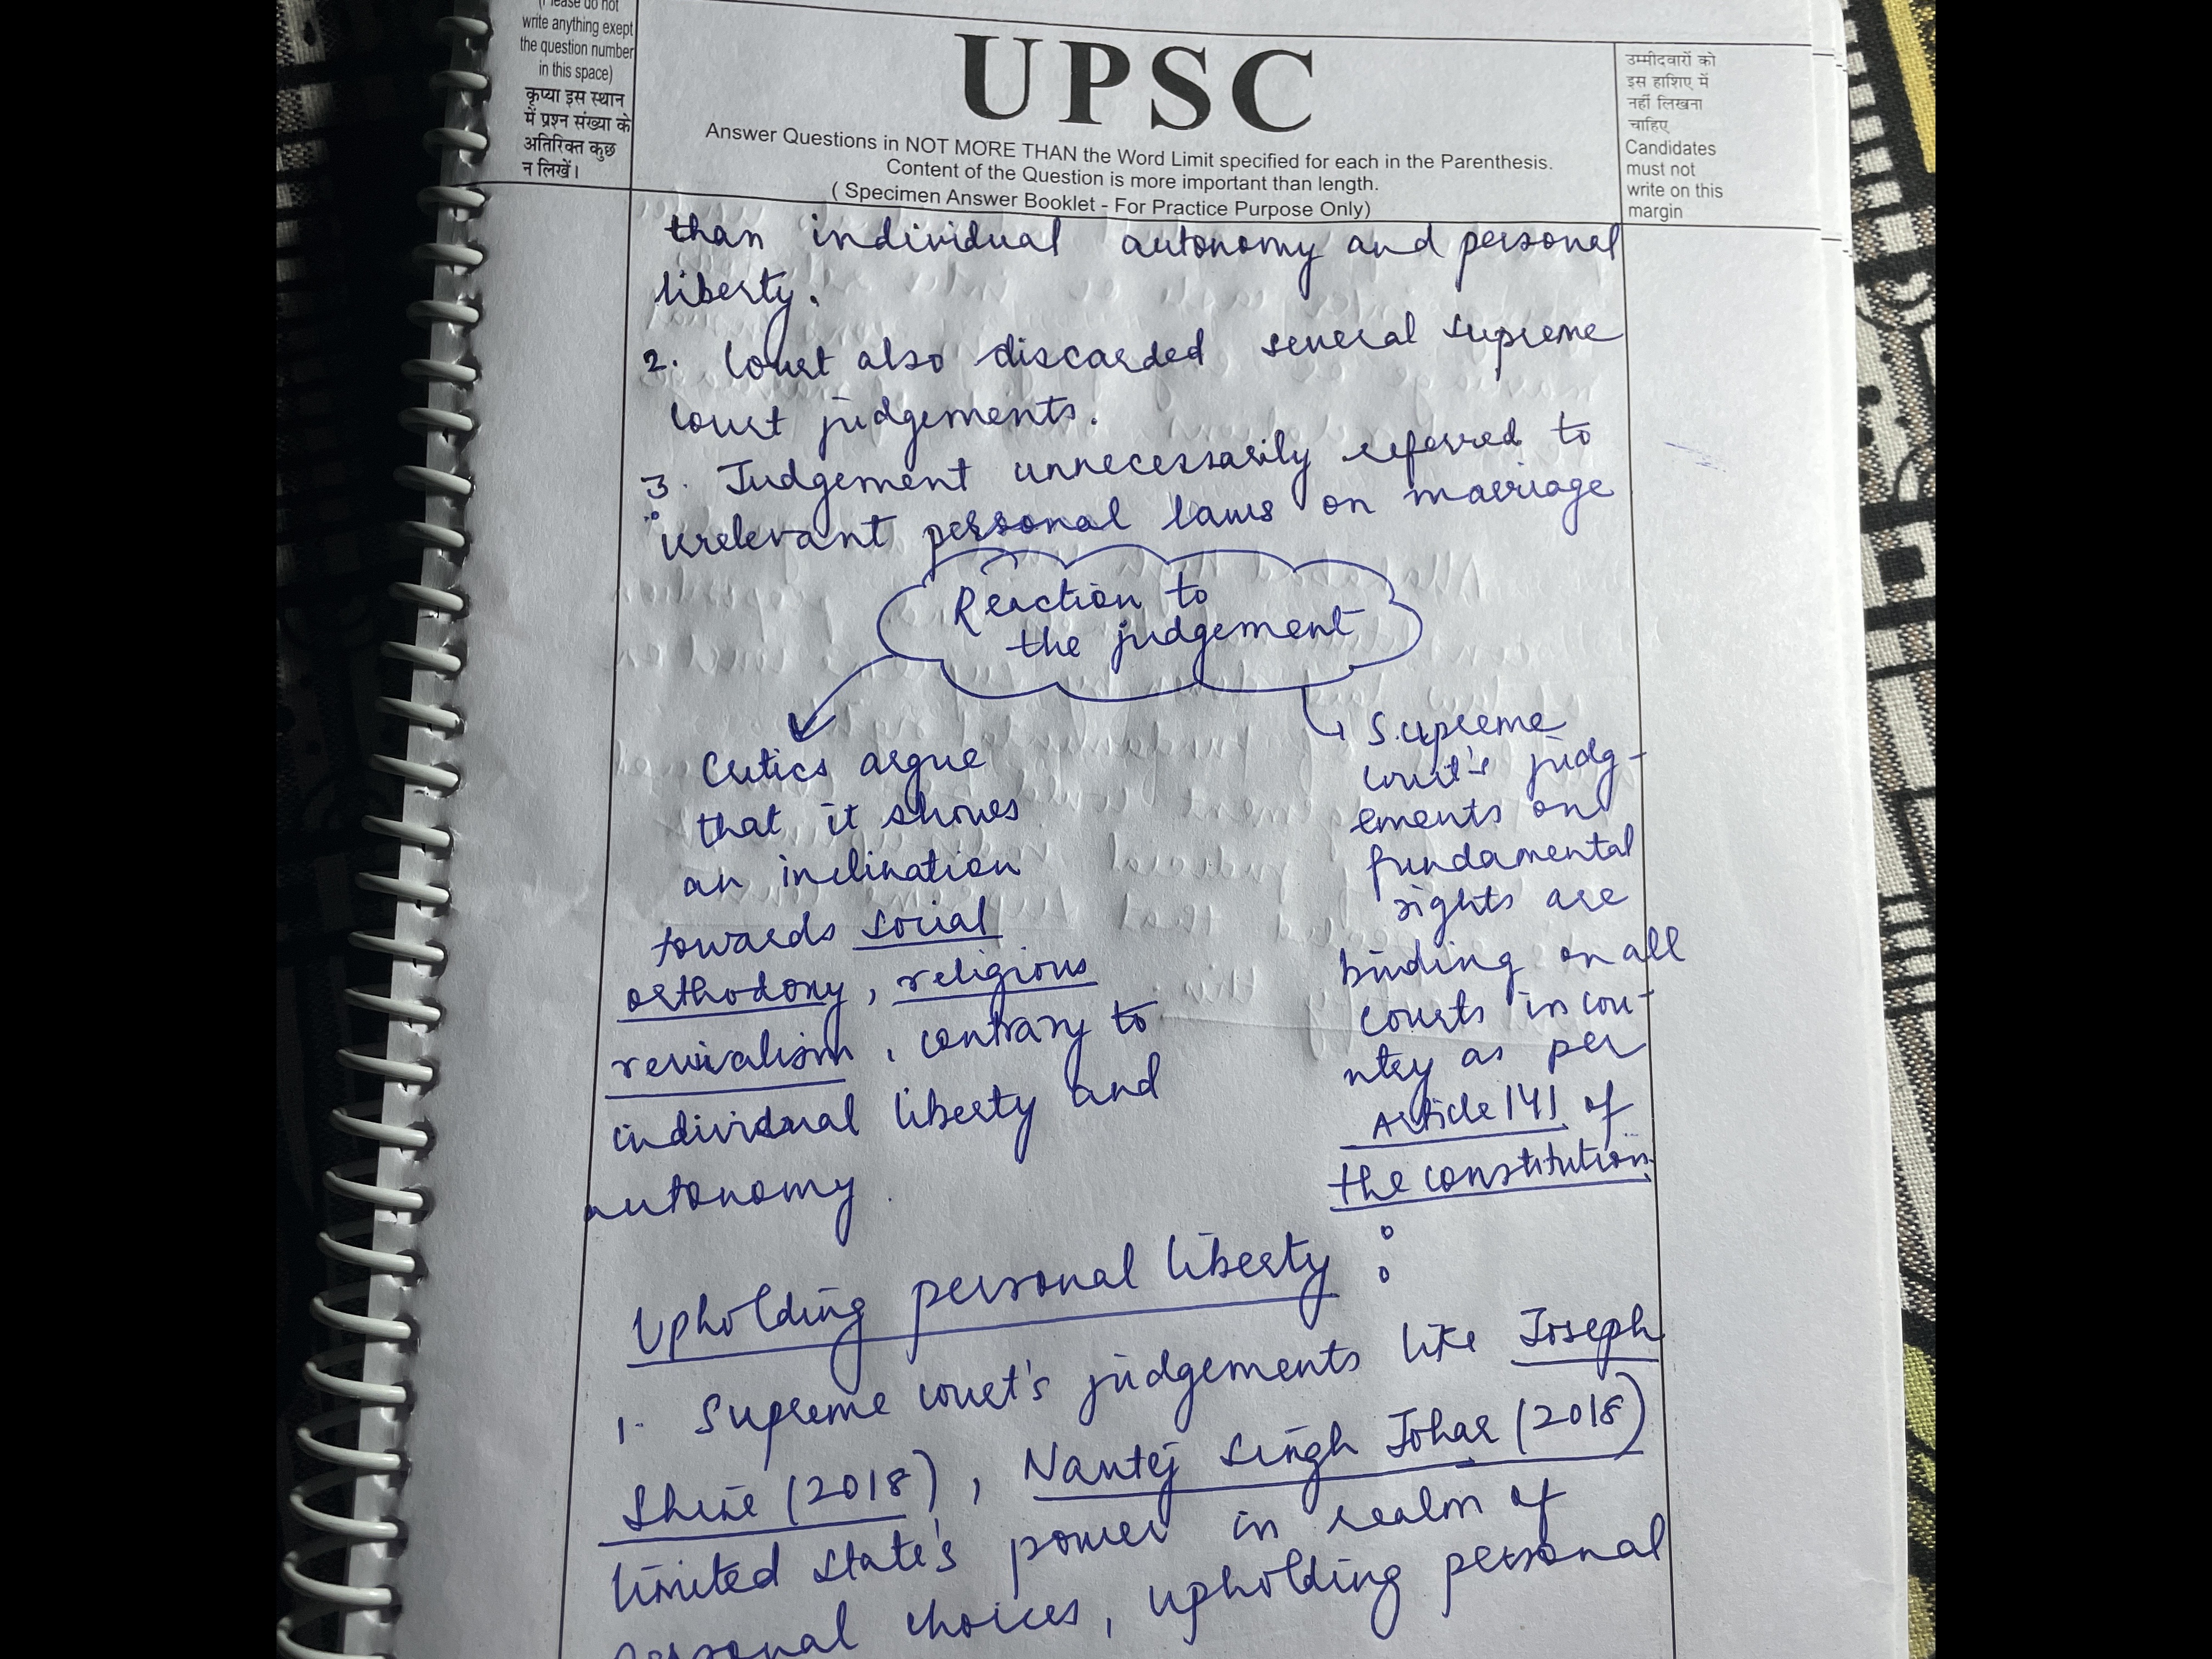 (Please do not
write anything exept
the question number
in this space)
कृप्या इस स्थान
में प्रश्न संख्या के
अतिरिक्त कुछ
न लिखें।
UPSC
Answer Questions in NOT MORE THAN the Word Limit specified for each in the Parenthesis.
Content of the Question is more important than length.
( Specimen Answer Booklet - For Practice Purpose Only)
उम्मीदवारों को
इस हाशिए में
नहीं लिखना
चाहिए
Candidates
must not
write on this
margin
than individual autonomy and personal
liberty.
2. Court also discarded several supreme
court judgements.
3. Judgement unnecessarily referred to
irrelevant personal laws on marriage
Reaction to
the judgement
Critics argue
that it shows
an inclination
towards social
orthodoxy, religious
revivalism, contrary to
individual liberty and
autonomy
Supreme
court's judg-
ements on
fundamental
rights are
binding on all
courts in cou-
ntry as per
Article 141 of
the constitution.
Upholding personal liberty :
1. Supreme court's judgements like Joseph
Shine (2018), Navtej Singh Johar (2018)
limited state's power in realm of
personal choices, upholding personal